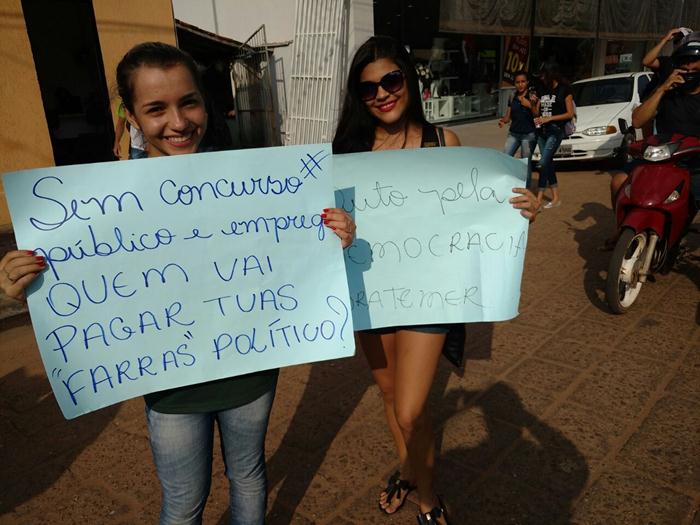 Sem concurso #
público e empreg
QUEM VAI
PAGAR TUAS
"FARRAS" POLÍTICO?
uto pela
EMOCRACIA
RATEMER
10x